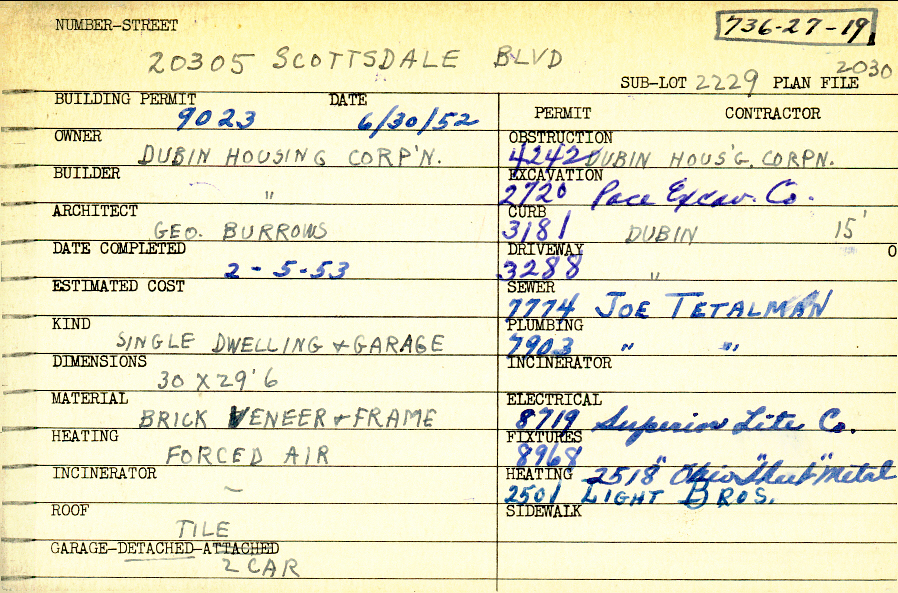 NUMBER-STREET
736-27-19
20305 SCOTTSDALE BLVD
2030
SUB-LOT 2229 PLAN FILE
BUILDING PERMIT DATE
9023 6/30/52
OWNER
DUBIN HOUSING CORP'N.
BUILDER
"
ARCHITECT
GEO. BURROWS
DATE COMPLETED
2-5-53
ESTIMATED COST
KIND
SINGLE DWELLING & GARAGE
DIMENSIONS
30 X 29'6
MATERIAL
BRICK VENEER & FRAME
HEATING
FORCED AIR
INCINERATOR
–
ROOF
TILE
GARAGE-DETACHED-ATTACHED
2 CAR
PERMIT CONTRACTOR
OBSTRUCTION
4242 DUBIN HOUS'G. CORPN.
EXCAVATION
2720 Pace Excav. Co.
CURB
3181 DUBIN 15'
DRIVEWAY 0
3288 "
SEWER
7774 JOE TETALMAN
PLUMBING
7903 " "
INCINERATOR
ELECTRICAL
8719 Superior Lite Co.
FIXTURES
8968 " "
HEATING 2518 Ohio Sheet Metal
2501 LIGHT BROS.
SIDEWALK